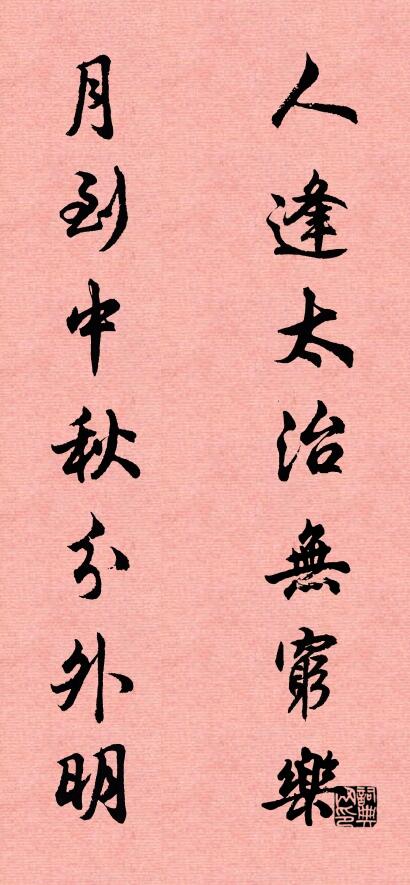 人逢太治無窮樂
月到中秋分外明